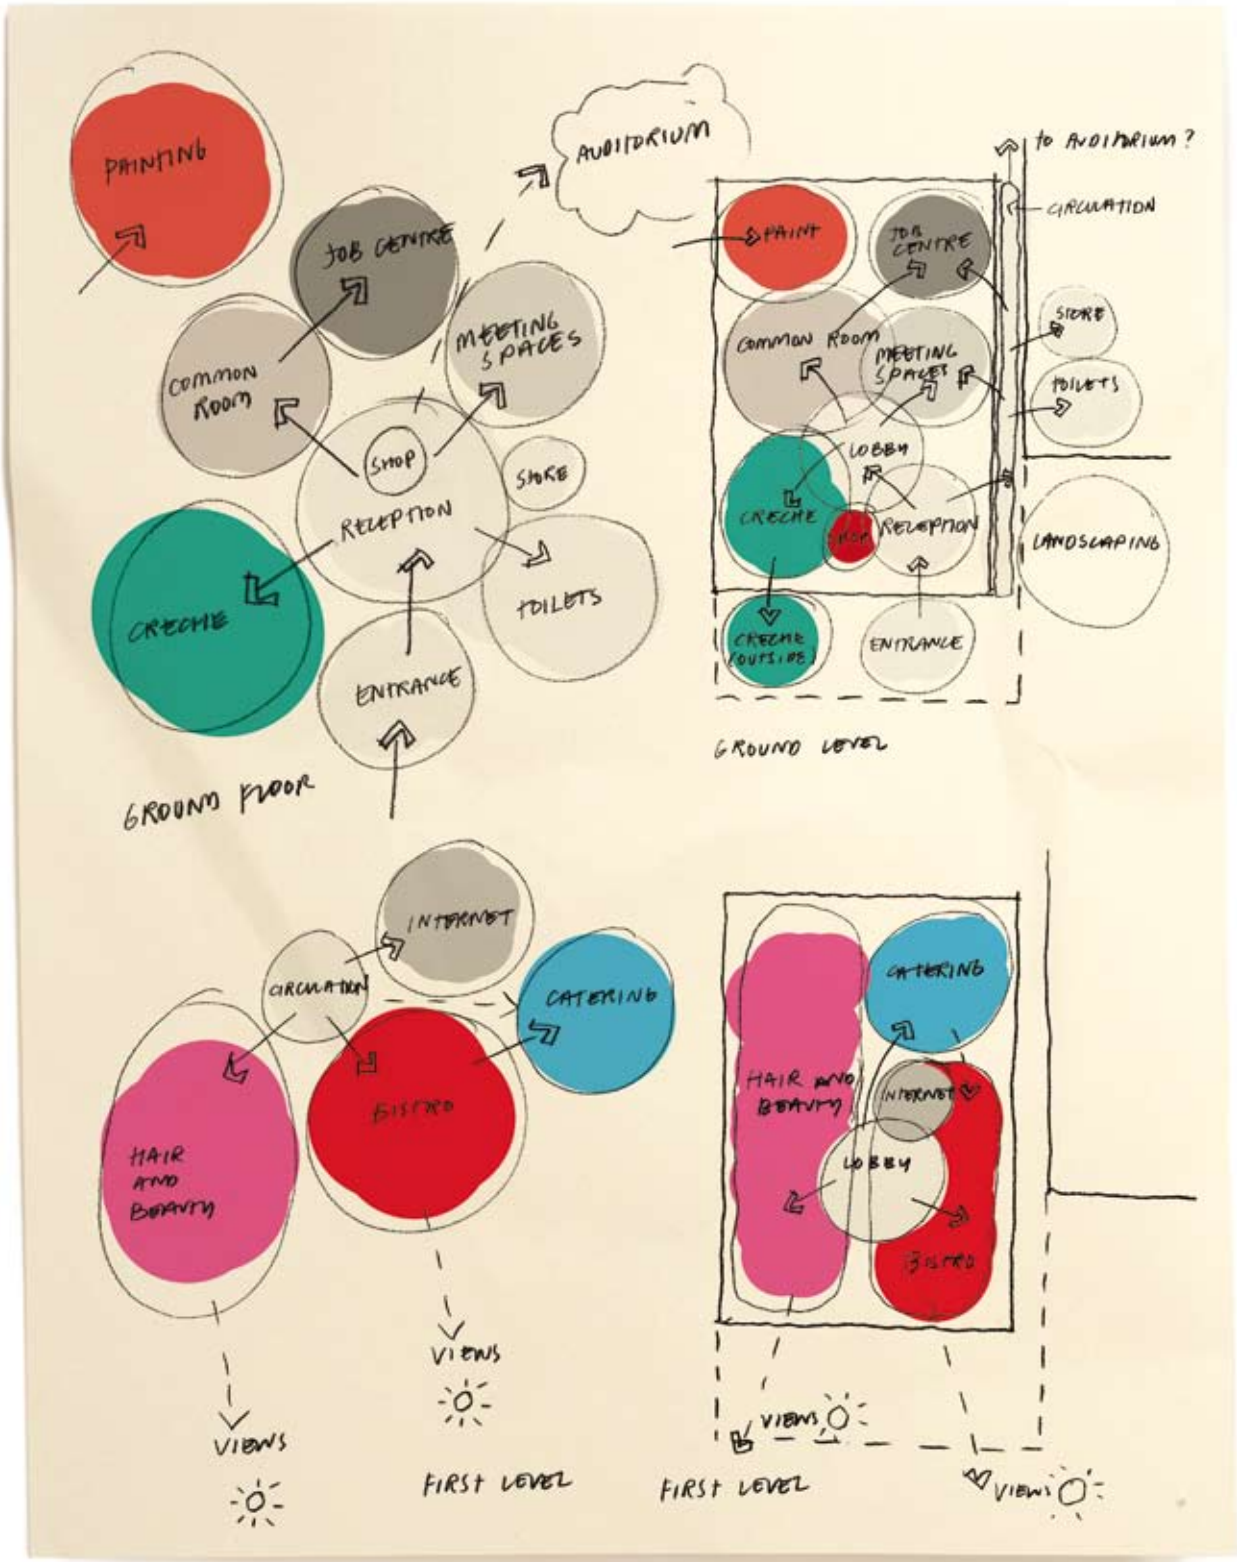 PAINTING
AUDITORIUM
JOB CENTRE
MEETING
SPACES
COMMON
ROOM
SHOP
STORE
RECEPTION
CRECHE
TOILETS
ENTRANCE
GROUND FLOOR
to AUDITORIUM?
CIRCULATION
PAINT
JOB
CENTRE
STORE
COMMON ROOM
MEETING
SPACES
TOILETS
LOBBY
CRECHE
SHOP
RECEPTION
LANDSCAPING
CRECHE
(OUTSIDE)
ENTRANCE
GROUND LEVEL
INTERNET
CIRCULATION
CATERING
BISTRO
HAIR
AND
BEAUTY
VIEWS
VIEWS
FIRST LEVEL
CATERING
HAIR AND
BEAUTY
INTERNET
LOBBY
BISTRO
VIEWS
FIRST LEVEL
VIEWS